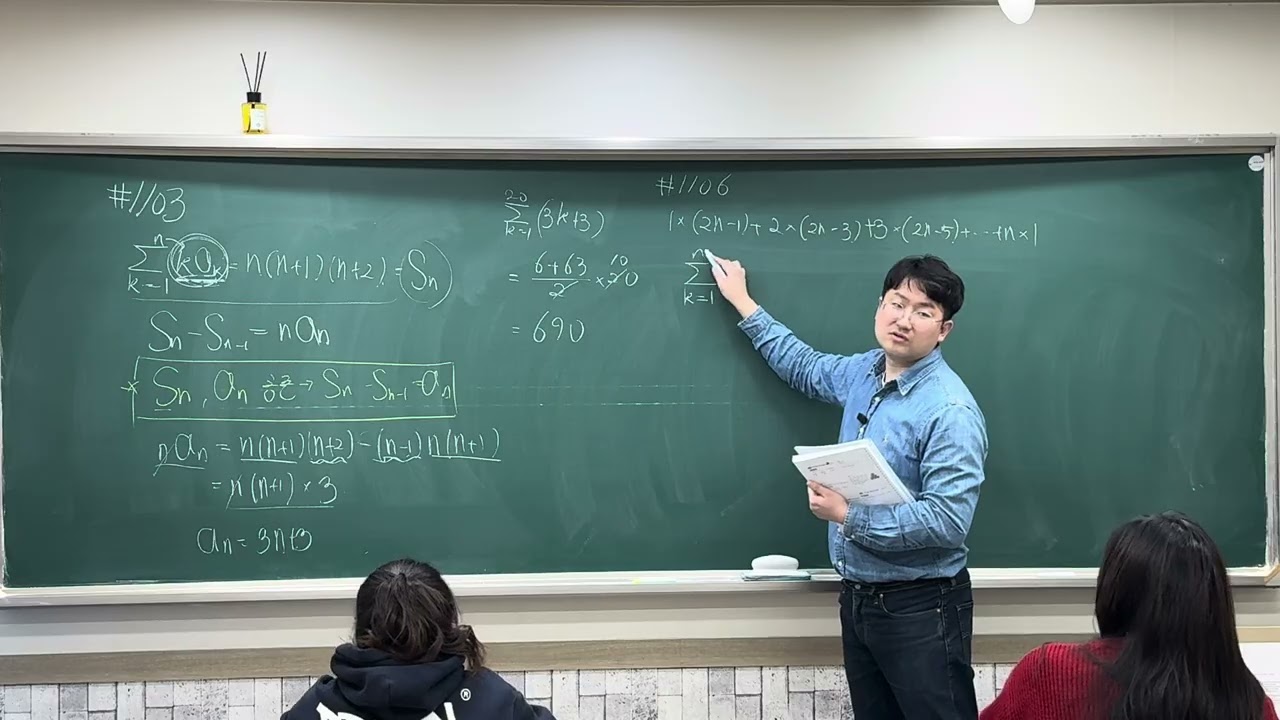 #1103
\sum_{k=1}^{n} ka_k = n(n+1)(n+2) = S_n
S_n - S_{n-1} = na_n
* S_n, a_n 혼용 → S_n - S_{n-1} = a_n
na_n = n(n+1)(n+2) - (n-1)n(n+1)
= n(n+1) × 3
a_n = 3n+3
\sum_{k=1}^{20} (3k+3)
= \frac{6+63}{2} × 20 10
= 690
#1106
1×(2n-1)+2×(2n-3)+3×(2n-5)+⋯+n×1
\sum_{k=1}^{n}
®